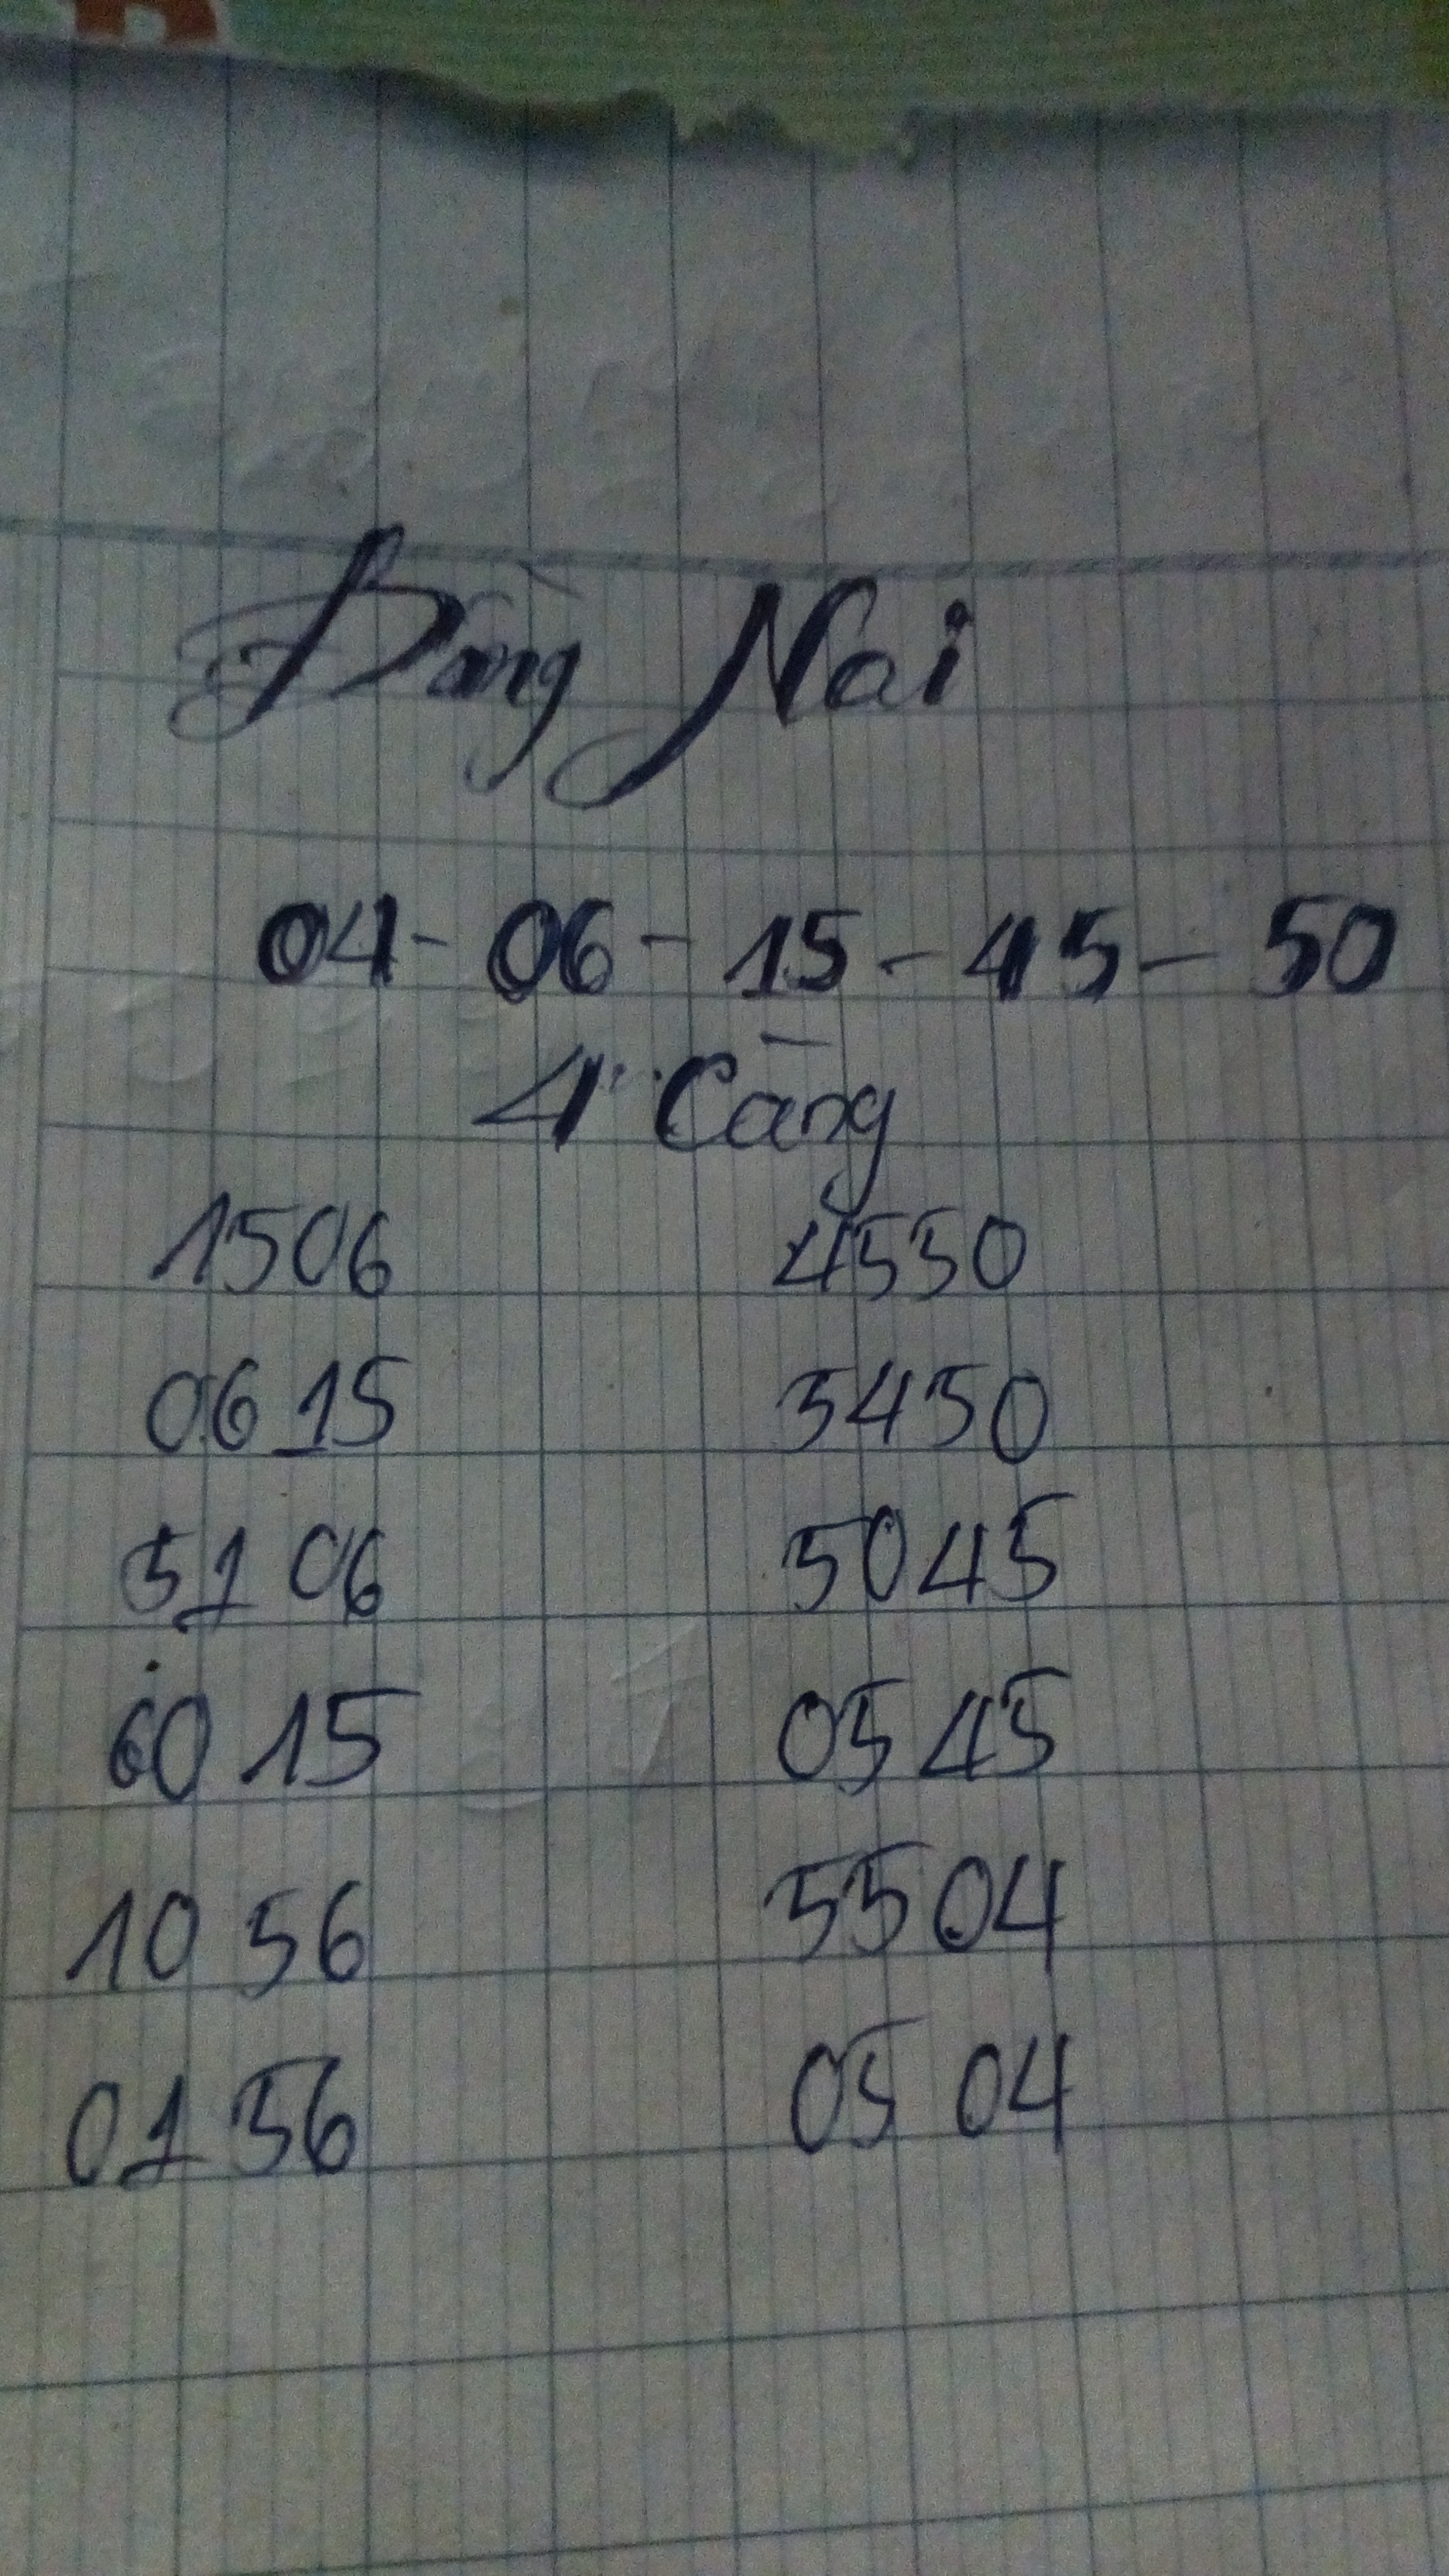 Đồng Nai
04 - 06 - 15 - 45 - 50
4 Càng
1506 4550
0615 5450
5106 5045
6015 0545
1056 5504
0156 0504